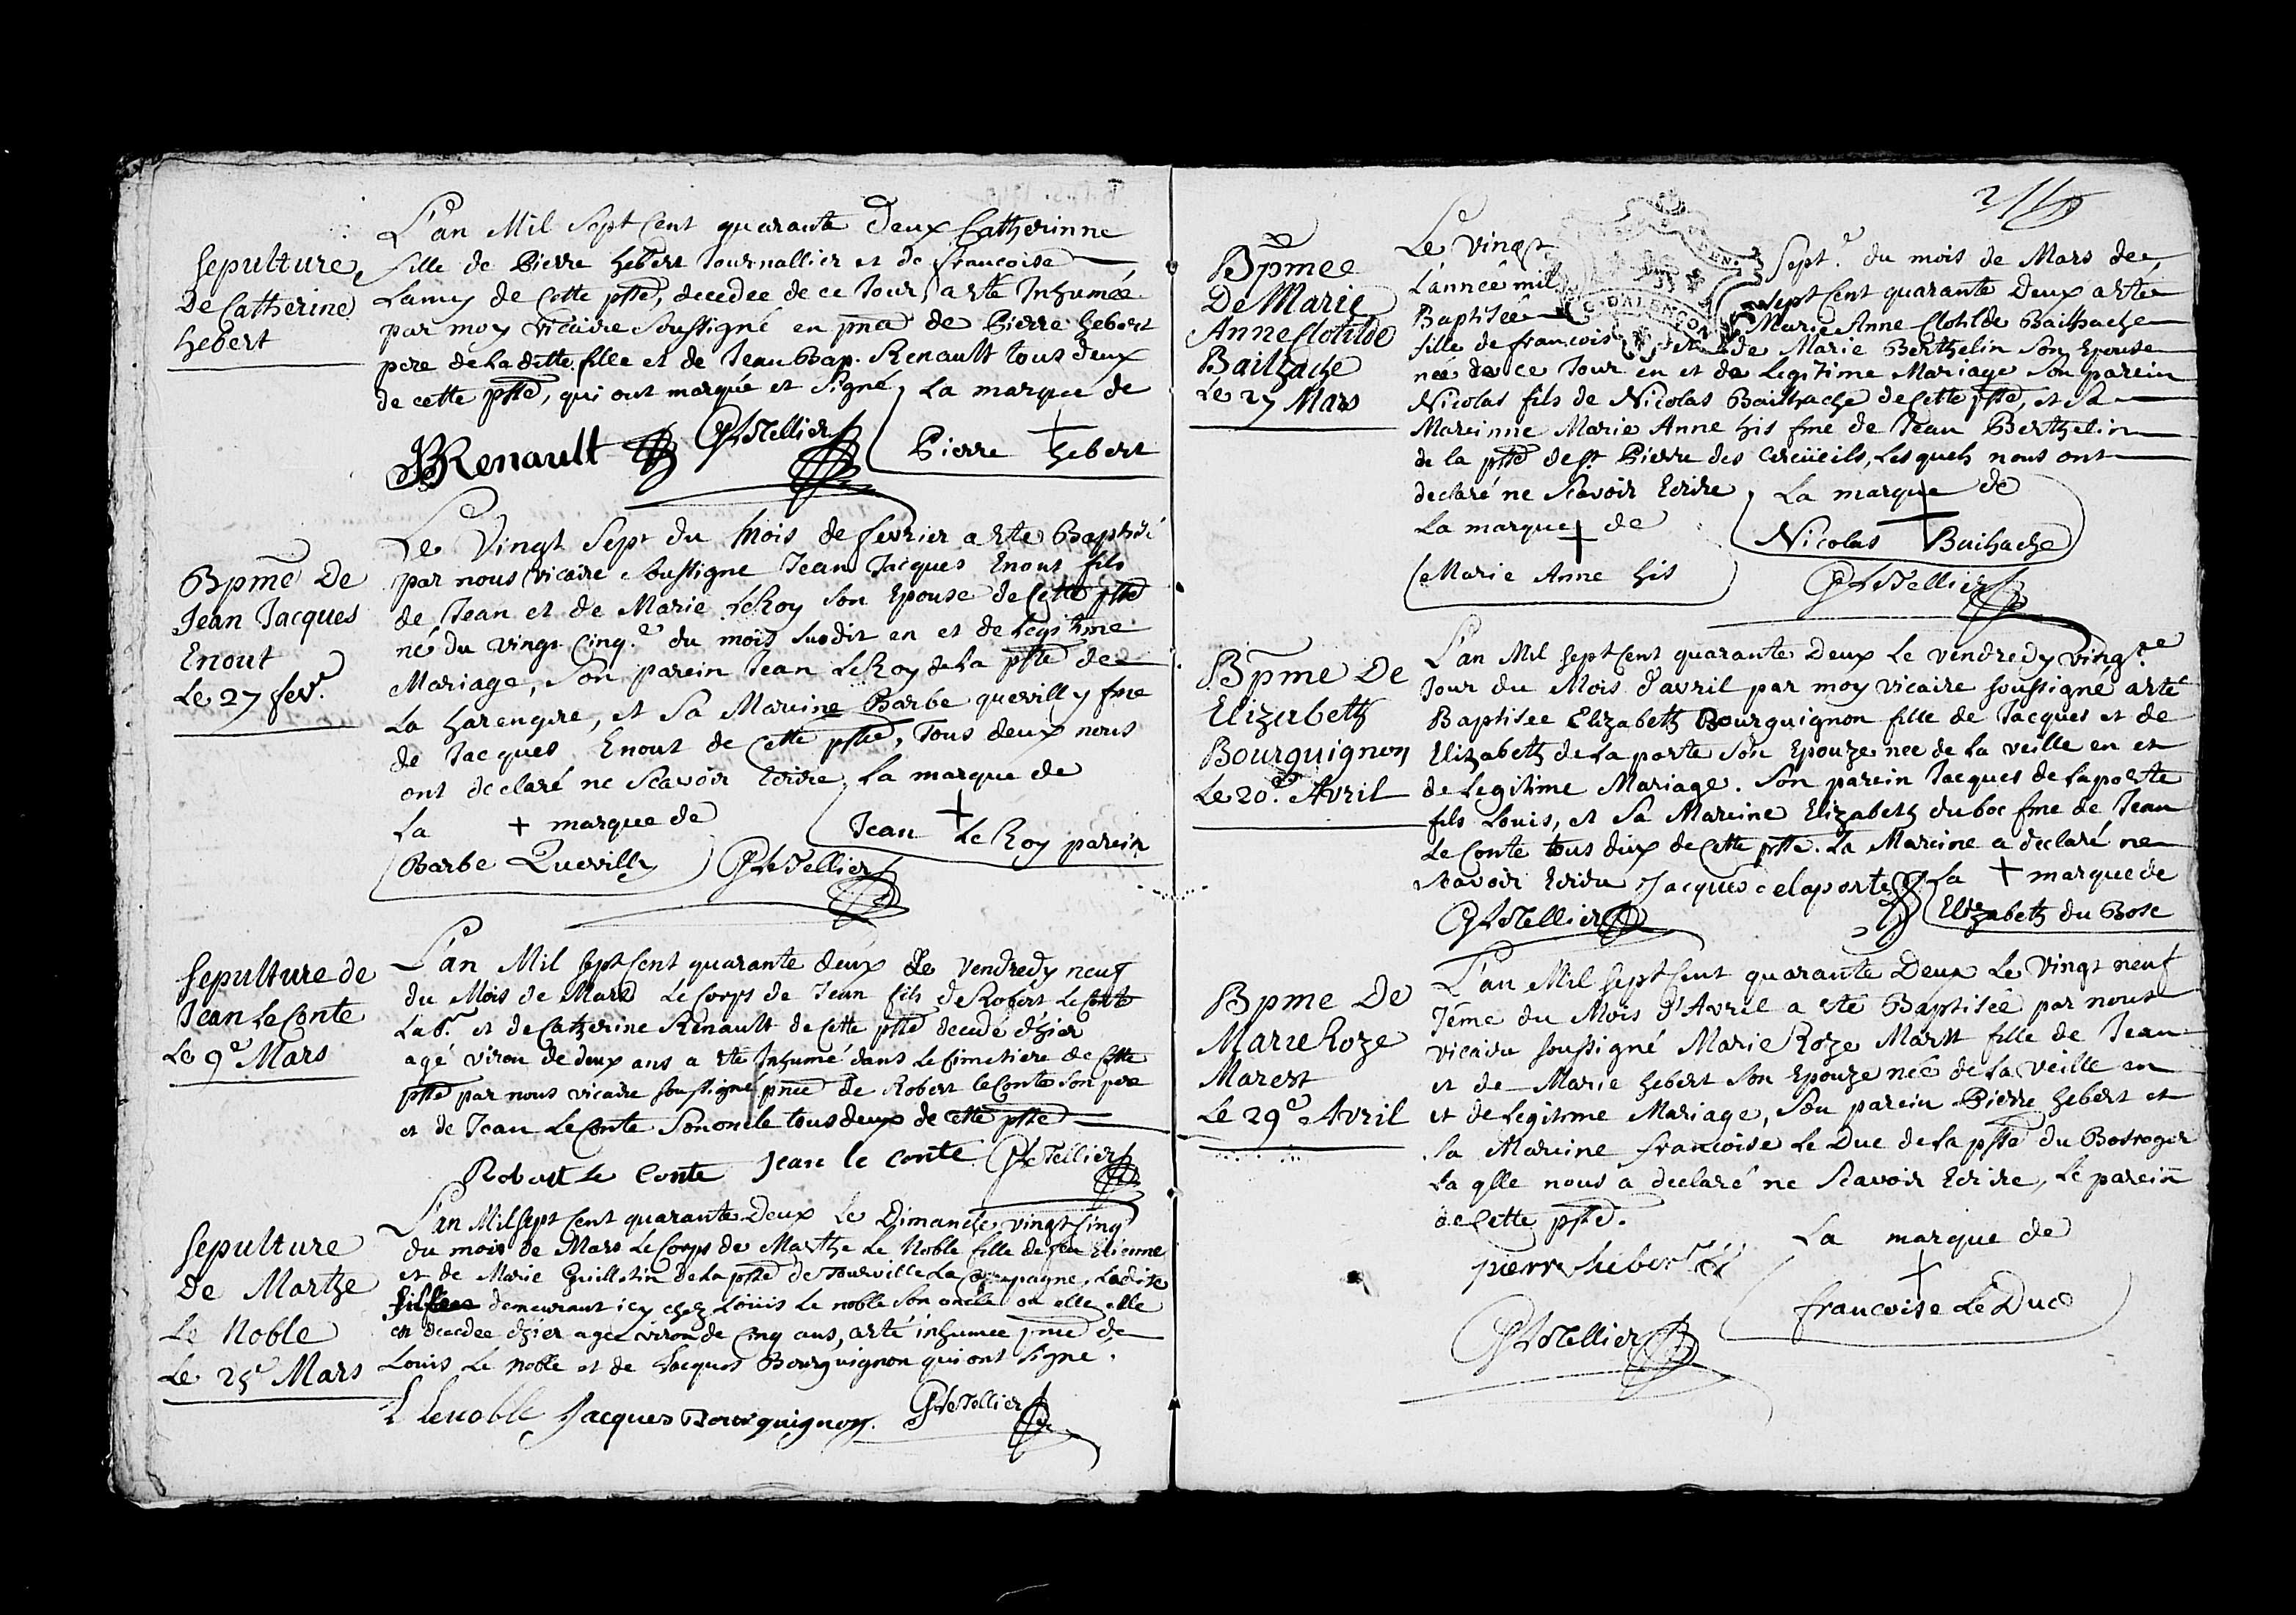 Sepulture
De Catherine
hebert
L'an Mil Sept Cent quarante Deux Catherinne
fille de Pierre hebert Journallier et de francoise
Lamy de Cette psse, decedee de ce Jour, a èté Inhumée
par moy vicaire Soussigné en pnce de Pierre hebert
pere de Ladette fille et de Jean Bap. Renault tous deux
de cette psse, qui ont marqué et Signé, La marque de
JBRenault GLeTellier Pierre + hebert
Bpme De
Jean Jacques
Enout
Le 27 fevr.
Le Vingt Sept du Mois de fevrier a ète Baptisé
par nous vicaire Soussigne Jean Jacques Enout fils
de Jean et de Marie LeRoy Son Epouse de Cette psse
né du vingt Cinq.e du mois Susdit en et de Legitime
Mariage, Son parein Jean LeRoy de La psse de
La harengere, et Sa Mareine Barbe quevilly fme
de Jacques Enout de Cette psse, Tous deux nous
ont declaré ne Scavoir Ecrire, La marque de
La + marque de
Jean + Le Roy parein
Barbe Quevilly GLeTellier
Sepulture de
Jean Le Conte
Le 9e Mars
L'an Mil Sept Cent quarante deux Le Vendredy neuf
du Mois de Mars Le Corps de Jean fils de Robert Le Conte
Lab.r et de Catherine Renault de Cette psse decedé d'hier
agé viron de deux ans a ete Inhumé dans Le Cimetiere de Cette
psse par nous vicaire Soussigné pnce de Robert Le Conte Son pere
et de Jean Le Conte Son oncle tous deux de Cette psse
Robert Le Conte Jean le conte GLeTellier
Sepulture
de Marthe
Le Noble
Le 25e Mars
L'an Mil Sept Cent quarante Deux Le Dimanche vingt Cinq
du mois de Mars Le Corps de Marthe Le Noble fille de feu Etienne
et de Marie Guillotin de La psse de Tourville La Campagne, Ladite
demeurant icy chez Loüis Le noble Son oncle ou elle elle
est decedee d'hier agee viron de Cinq ans, a eté inhumee pnce de
Louis Le Noble et de Jacques Bourguignon qui ont Signe.
L Lenoble Jacques Bourguignon. GLeTellier
2
Bpmee
De Marie
Anne Clotilde
Bailhache
Le 27 Mars
Le Vingt Sept.e du mois de Mars de
L'année mil Sept Cent quarante Deux a eté
Baptisée Marie Anne Clotilde Bailhache
fille de francois et de Marie Berthelin Son Epouse
nee de ce Jour en et de Legitime Mariage Son parein
Nicolas fils de Nicolas Bailhache de Cette psse, et Sa
Mareinne Marie Anne his fme de Jean Berthelin
de la psse de St Pierre des Cercüeils, Lesquels nous ont
declaré ne Scavoir Ecrire, La marque de
La marque + de
Nicolas + Bailhache
Marie Anne his
GLeTellier
Bpme De
Elizabeth
Bourguignon
Le 20.e Avril
L'an Mil Sept Cent quarante Deux Le Vendredy vingt.e
Jour du Mois d'avril par moy vicaire Soussigné a eté
Baptisee Elizabeth Bourguignon fille de Jacques et de
Elizabeth de La porte Son Epouze nee de La veille en et
de Legitime Mariage. Son parein Jacques de Laporte
fils Louis, et Sa Mareine Elizabeth du boc fme de Jean
Le Conte tous deux de Cette psse. La Mareine a declaré ne
Scavoir Ecrire Jacques delaporte La + marque de
GLeTellier Elizabeth du Bosc
Bpme De
Marie Roze
Marest
Le 29e Avril
L'an Mil Sept Cent quarante Deux Le Vingt neuf
Jéme du Mois d'Avril a eté Baptisée par nous
vicaire Soussigné Marie Roze Marest fille de Jean
et de Marie hebert Son Epouze née de La veille en
et de Legitime Mariage, Son parein Pierre hebert et
Sa Mareine francoise Le Duc de La psse du Bosroger
La qlle nous a declaré ne Scavoir Ecrire, Le parein
de Cette psse.
La marque de
pierre hebert
+
francoise Le Duc
GLeTellier